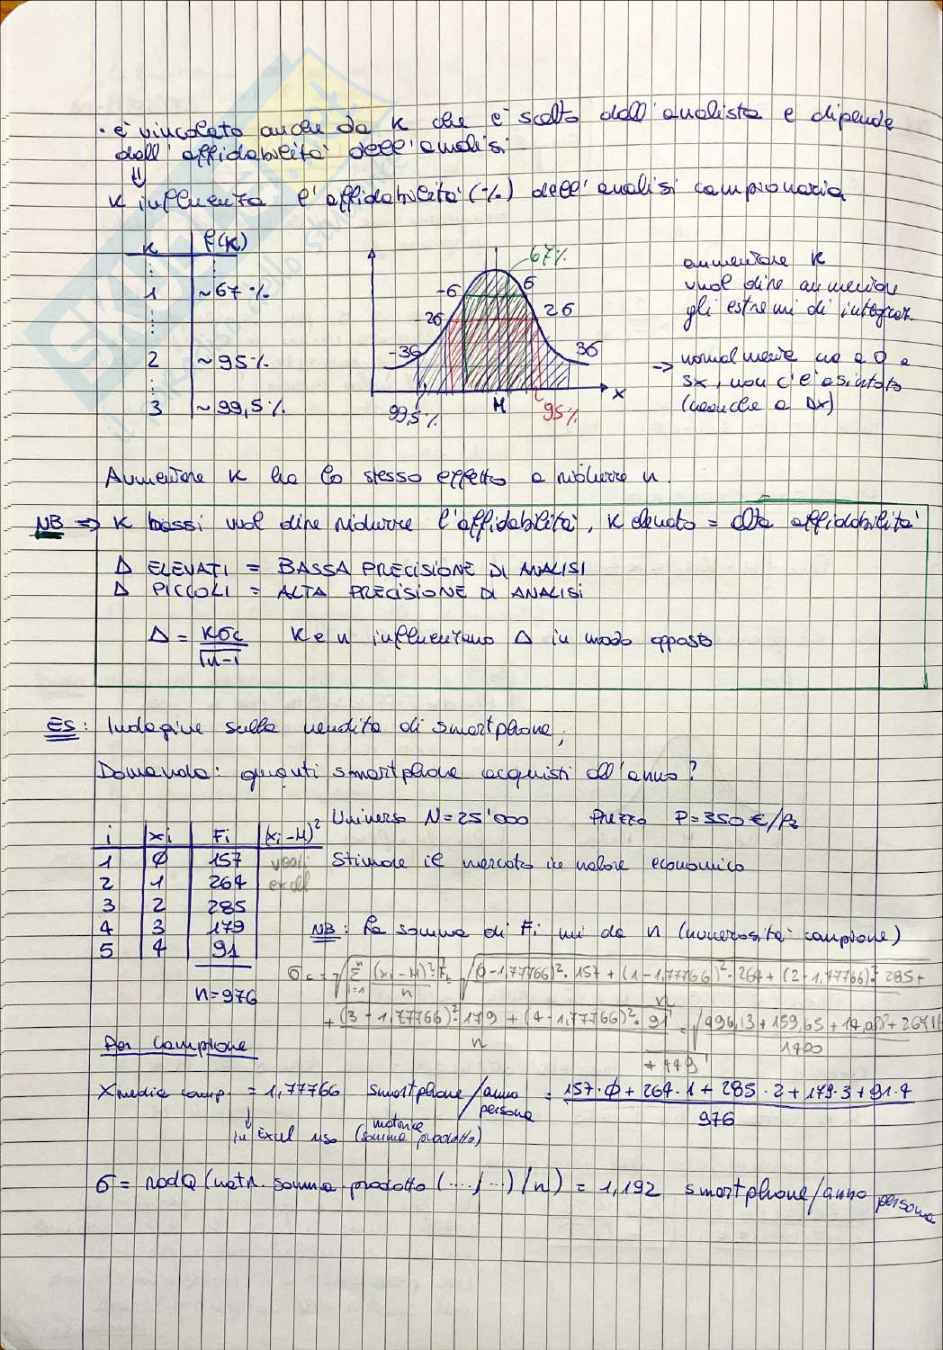 · è vincolato anche da K che è scelto dall'analista e dipende
dall'affidabilità dell'analisi
⇓
K influenza l'affidabilità (%) dell'analisi campionaria
K | f(K)
1 | ~67 %
2 | ~95 %
3 | ~99,5 %
67%
-σ σ
-2σ 2σ
-3σ 3σ
99,5% M 95% x
aumentare K
vuol dire aumentare
gli estremi di integraz.
→ normalmente va a 0 a
sx, non c'è asintoto
(neanche a Dx)
Aumentare K ha lo stesso effetto a ridurre n.
NB ⇒ K bassi vuol dire ridurre l'affidabilità, K elevato = alta affidabilità
Δ ELEVATI = BASSA PRECISIONE DI ANALISI
Δ PICCOLI = ALTA PRECISIONE DI ANALISI
Δ = Kσc / √n-1 K e n influenzano Δ in modo opposto
ES: Indagine sulla vendita di smartphone;
Domanda: quanti smartphone acquisti all'anno?
Universo N=25'000 Prezzo P=350€/pz
Stimare il mercato in valore economico
i | xi | Fi | (xi-M)²
1 | Ø | 157
2 | 1 | 264
3 | 2 | 285
4 | 3 | 179
5 | 4 | 91
n=976
NB: la somma di Fi mi da n (numerosità campione)
σc = √ Σ (xi-M)² Fi / n = √ (0-1,77766)²·157 + (1-1,77766)²·264 + (2-1,77766)²·285 +
+ (3-1,77766)²·179 + (4-1,77766)²·91 / n
Per campione
Xmedia camp. = 1,77766 smartphone/anno persona = 157·Ø + 264·1 + 285·2 + 179·3 + 91·4 / 976
in Excel uso (matrice somma prodotto)
σ = radQ (matr. somma prodotto (..../...) / n) = 1,192 smartphone/anno persona